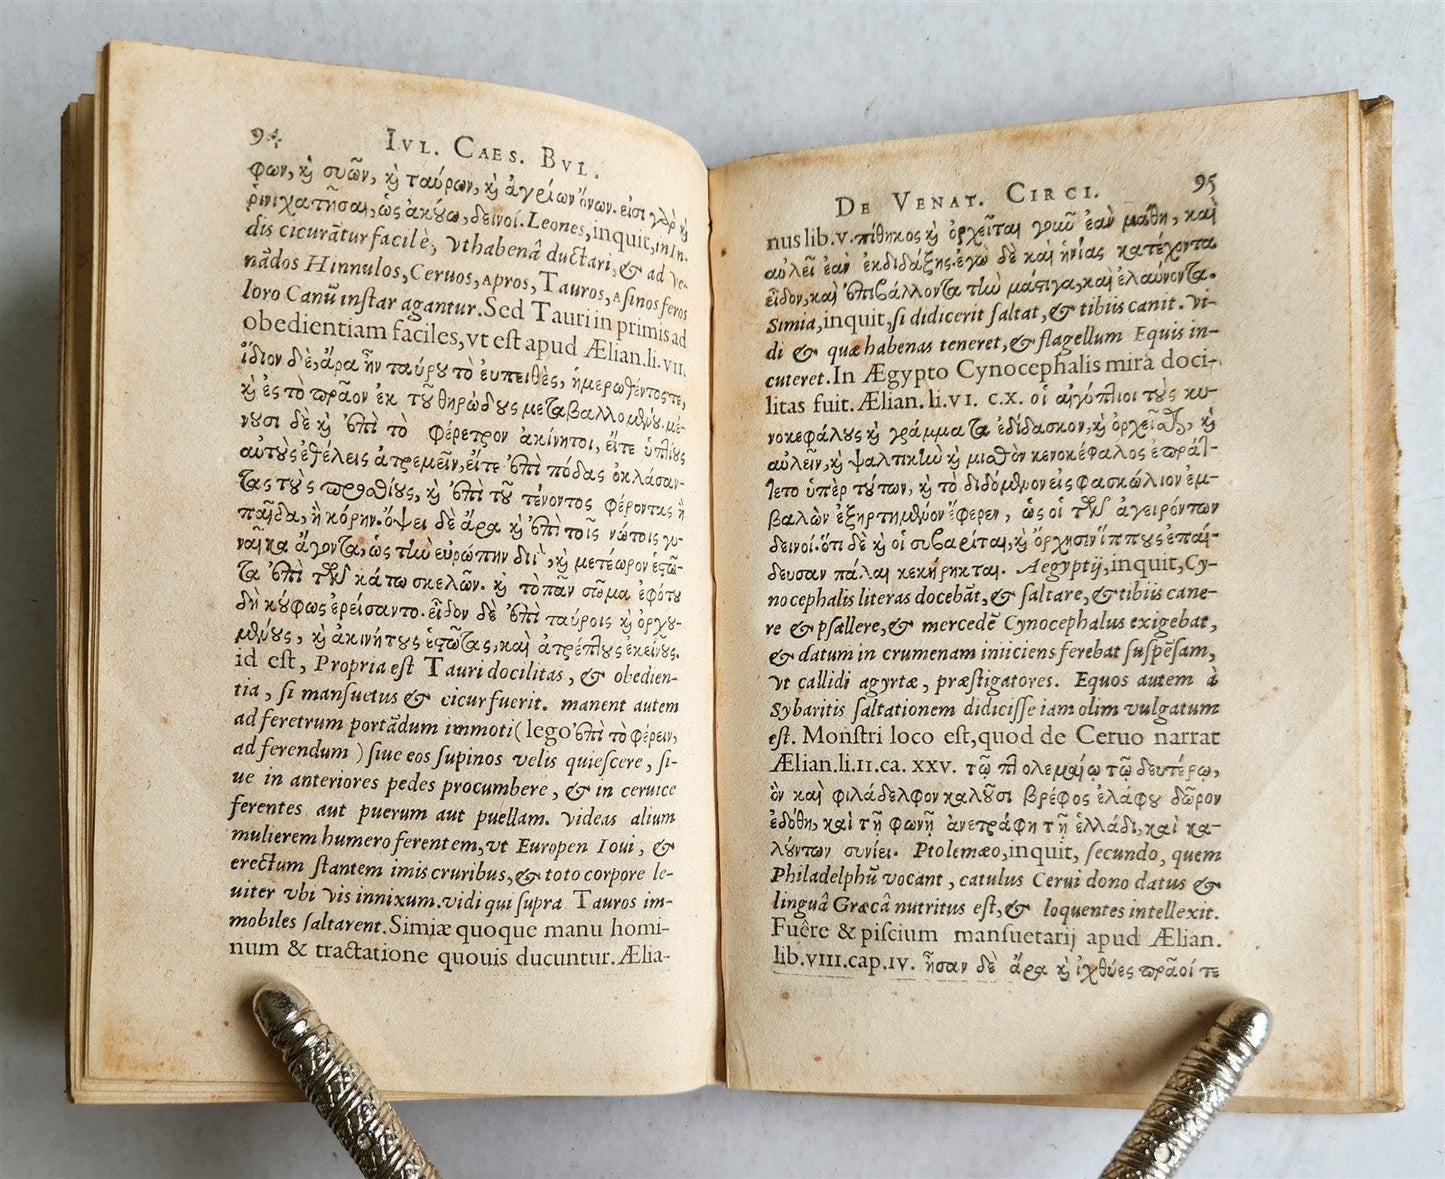 94 IVL. CAES. BVL.
φων, καὶ συῶν, καὶ ταύρων, καὶ ἀγρίων ὄνων. εἰσὶ γὰρ καὶ
ῥινηλατῆσαι, ὡς ἀκούω, δεινοί. Leones, inquit, in In-
dis cicurātur facilè, vt habenâ ductari, & ad ve-
nādos Hinnulos, Ceruos, Apros, Tauros, Asinos feros
loro Canū instar agantur. Sed Tauri in primis ad
obedientiam faciles, vt est apud Ælian. li. VII.
ἴδιον δὲ, ἄρα ἦν ταύρου τὸ εὐπειθὲς, ἡμερωθέντος τε,
καὶ ἐς τὸ πρᾶον ἐκ τοῦ θηριώδους μεταβαλλομένου. μέ-
νουσι δὲ καὶ ἐπὶ τὸ φέρετρον ἀκίνητοι, εἴτε ὑπτίους
αὐτοὺς ἐθέλεις ἀτρεμεῖν, εἴτε ἐπὶ πόδας ὀκλάσαν-
τας τοὺς προσθίους, καὶ ἐπὶ τοῦ τένοντος φέροντας ἢ
παῖδα, ἢ κόρην. ὄψει δὲ ἄρα καὶ ἐπὶ τοῖς νώτοις γυ-
ναῖκα ἄγοντα, ὡς τὴν εὐρώπην διῒ, καὶ μετέωρον ἑστῶ-
τα ἐπὶ τῶν κάτω σκελῶν. καὶ τὸ πᾶν σῶμα ἐφ' ὅτου
δὴ κούφως ἐρείσαντο. εἶδον δὲ ἐπὶ ταύροις καὶ ὀρχου-
μένους, καὶ ἀκινήτους ἑστῶτας, καὶ ἀτρέπτους ἐκείνους.
id est, Propria est Tauri docilitas, & obedien-
tia, si mansuetus & cicur fuerit. manent autem
ad feretrum portādum immoti (lego ἐπὶ τὸ φέρειν,
ad ferendum) siue eos supinos velis quiescere, si-
ue in anteriores pedes procumbere, & in ceruice
ferentes aut puerum aut puellam. Videas alium
mulierem humero ferentem, vt Europen Ioui, &
erectum stantem imis cruribus, & toto corpore le-
uiter vbi vis innixum. vidi qui supra Tauros im-
mobiles saltarent. Simiæ quoque manu homi-
num & tractatione quouis ducuntur. Ælia-
DE VENAT. CIRCI. 95
nus lib. v. πίθηκος καὶ ὀρχεῖται γοῦν ἐὰν μάθῃ, καὶ
αὐλεῖ ἐὰν ἐκδιδάξῃς. ἐγὼ δὲ καὶ ἡνίας κατέχοντα
εἶδον, καὶ ἐπιβάλλοντα τὴν μάστιγα, καὶ ἐλαύνοντα.
Simia, inquit, si didicerit saltat, & tibiis canit. Vi-
di & quæ habenas teneret, & flagellum Equis in-
cuteret. In Ægypto Cynocephalis mira doci-
litas fuit. Ælian. li. VI. c. X. οἱ αἰγύπτιοι τοὺς κυ-
νοκεφάλους καὶ γράμματα ἐδίδασκον, καὶ ὀρχεῖσθαι, καὶ
αὐλεῖν, καὶ ψαλτικὴν καὶ μισθὸν κενοκέφαλος ἐπράτ-
τετο ὑπὲρ τούτων, καὶ τὸ διδόμενον εἰς φασκώλιον ἐμ-
βαλὼν ἐξηρτημένον ἔφερεν, ὡς οἱ τῶν ἀγειρόντων
δεινοί. ὅτι δὲ καὶ οἱ συβαρίται, καὶ ὄρχησιν ἵππους ἐπαί-
δευσαν πάλαι κεκήρηκται. Aegyptij, inquit, Cy-
nocephalis literas docebāt, & saltare, & tibiis cane-
re & psallere, & mercedē Cynocephalus exigebat,
& datum in crumenam iniiciens ferebat suspēsam,
vt callidi agyrtæ, præstigatores. Equos autem à
Sybaritis saltationem didicisse iam olim vulgatum
est. Monstri loco est, quod de Ceruo narrat
Ælian. li. II. ca. XXV. τῷ πτολεμαίῳ τῷ δευτέρῳ,
ὃν καὶ φιλάδελφον καλοῦσι βρέφος ἐλάφου δῶρον
ἐδόθη, καὶ τῇ φωνῇ ἀνετράφη τῇ ἑλλάδι, καὶ κα-
λούντων συνίει. Ptolemæo, inquit, secundo, quem
Philadelphū vocant, catulus Cerui dono datus &
linguâ Græcâ nutritus est, & loquentes intellexit.
Fuêre & piscium mansuetarij apud Ælian.
lib. VIII. cap. IV. ἦσαν δὲ ἄρα καὶ ἰχθύες πρᾶοί τε